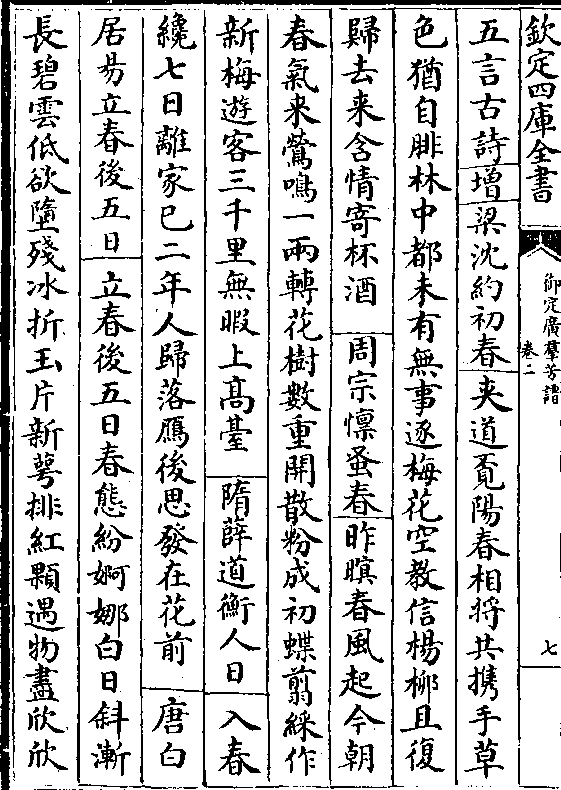 欽定四庫全書
御定廣羣芳譜
卷二
七
五言古詩增梁沈約初春夾道覓陽春相將共攜手草
色猶自腓林中都未有無事逐梅花空教信楊栁且復
歸去来含情寄杯酒 周宗懍蚤春昨暝春風起今朝
春氣来鶯鳴一兩轉花樹數重開散粉成初蝶翦綵作
新梅遊客三千里無暇上髙臺 隋薛道衡人日入春
纔七日離家已二年人歸落鴈後思發在花前 唐白
居易立春後五日立春後五日春態紛婀娜白日斜漸
長碧雲低欲墮殘冰折玉片新萼排紅顆遇物盡欣欣